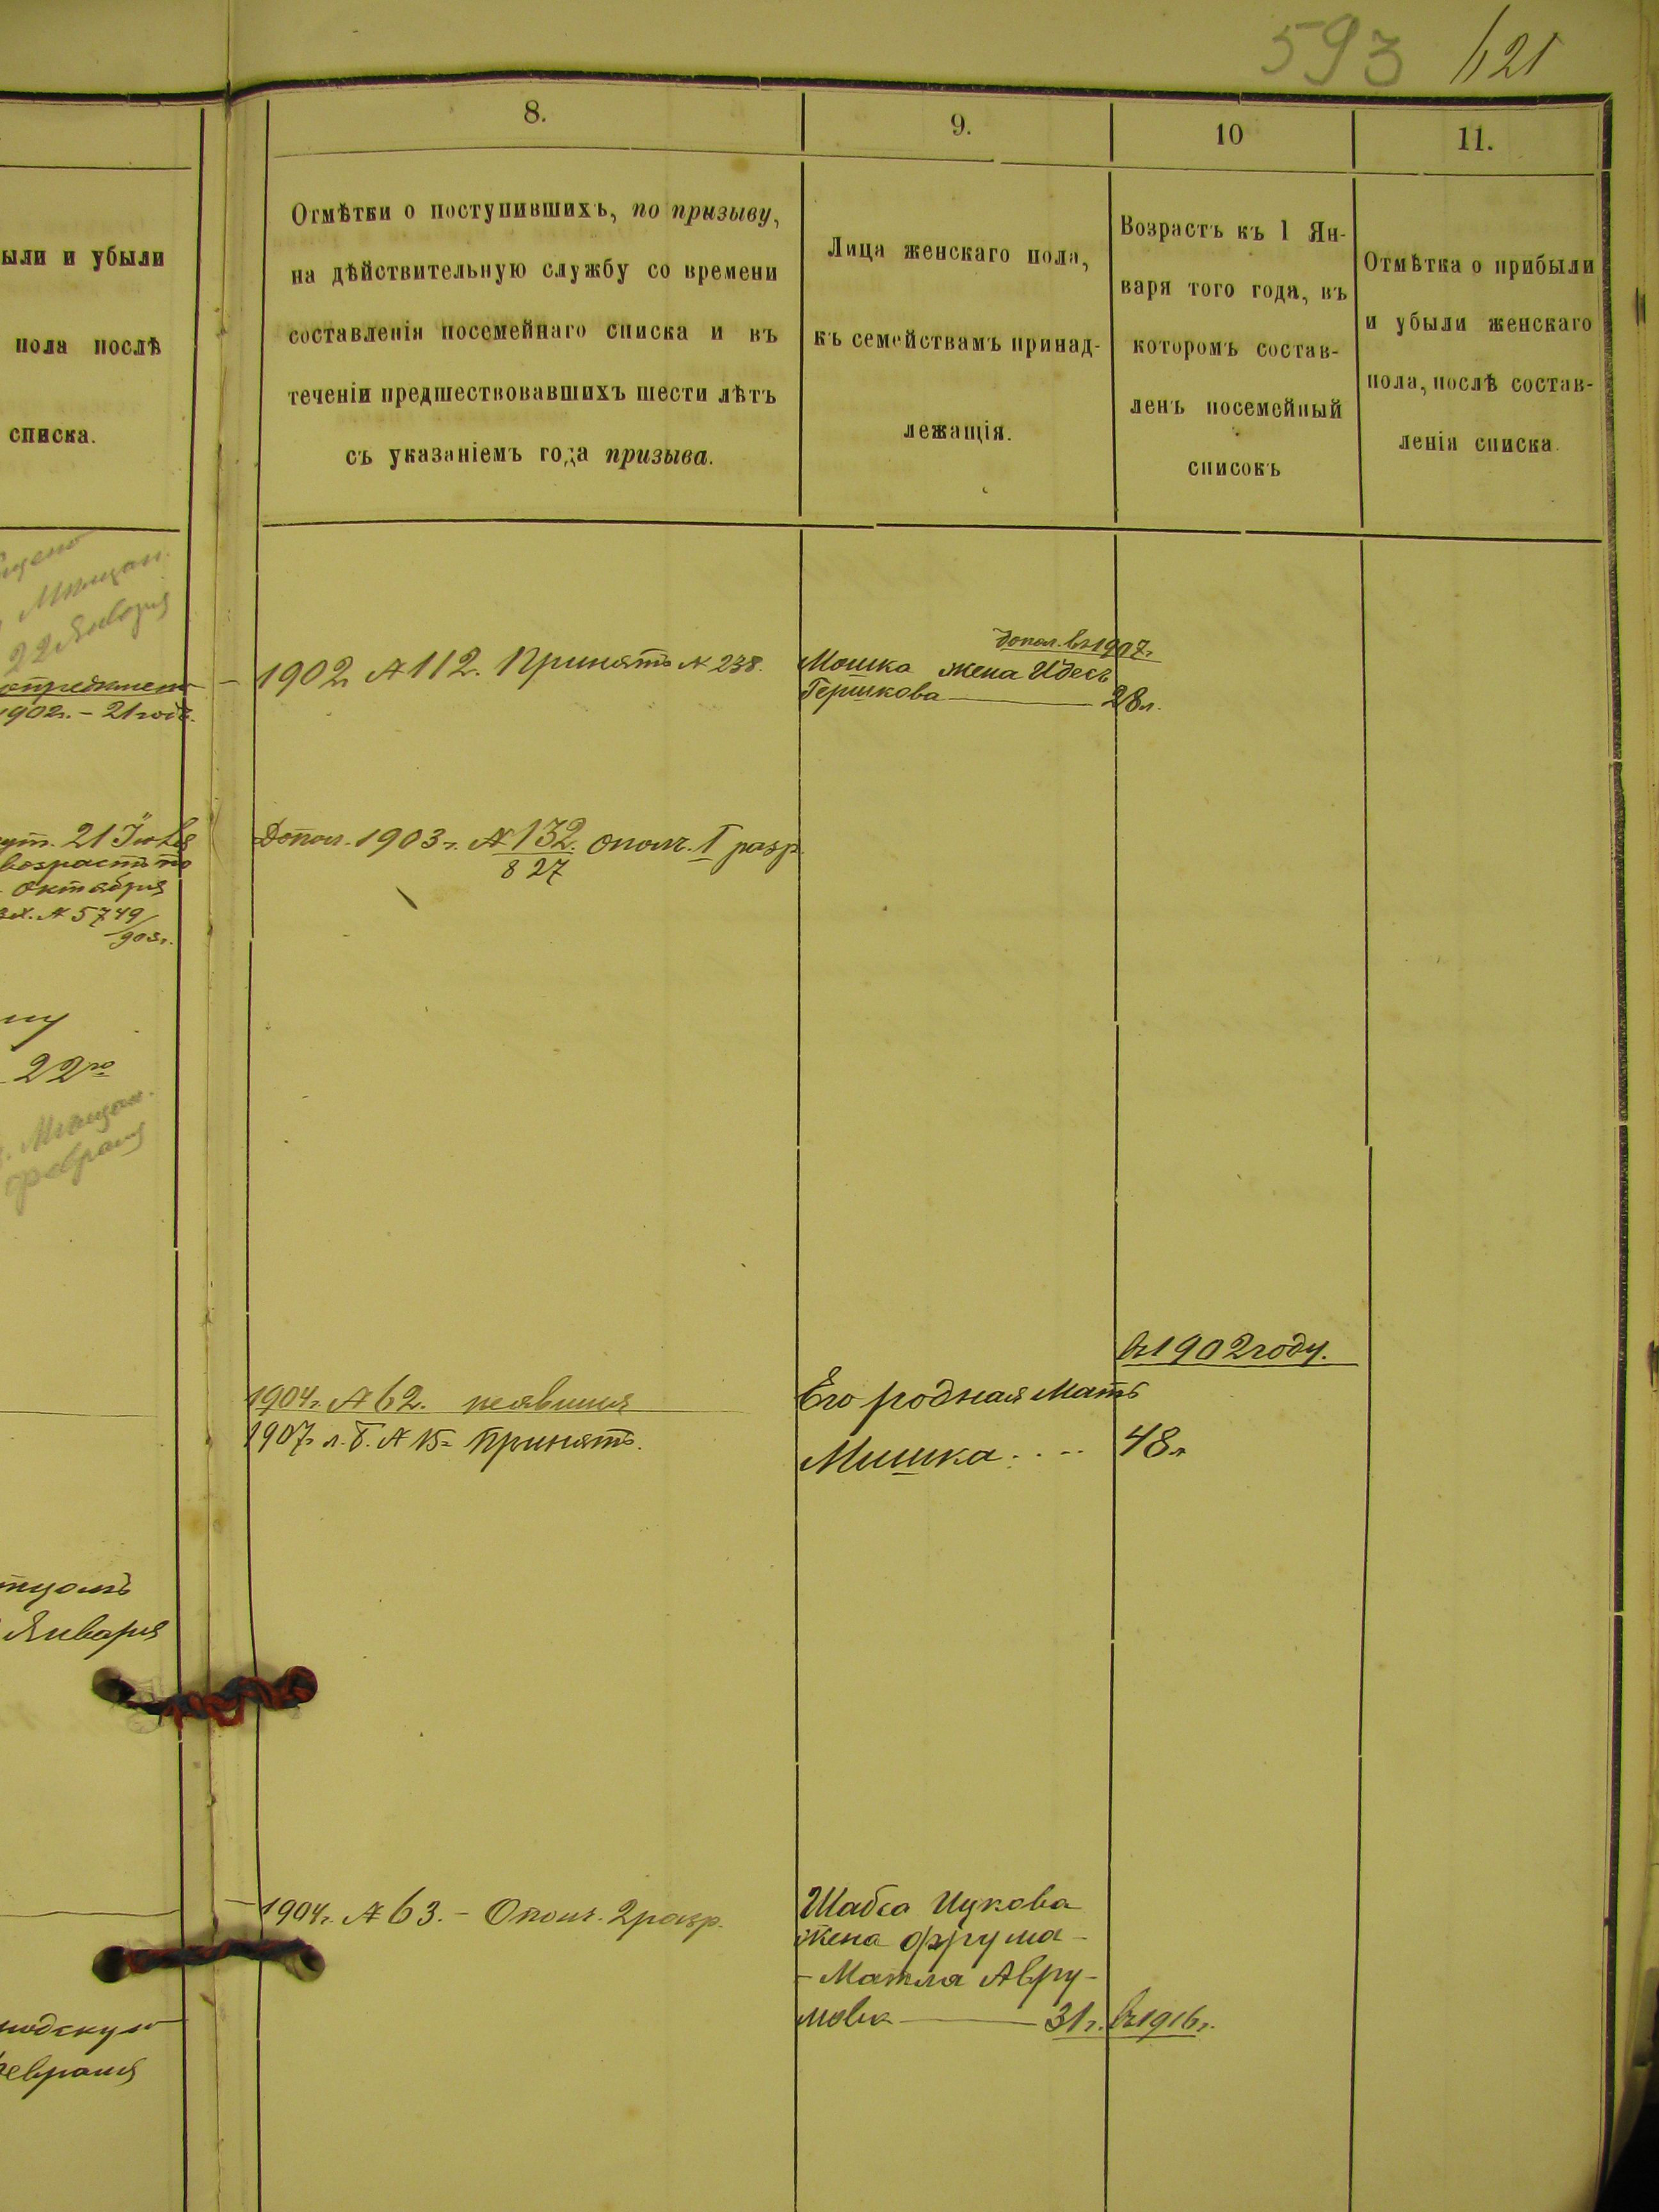 593 621
8. 9. 10 11.
ыли и убыли
пола послѣ
списка.
Отмѣтки о поступившихъ, по призыву,
на дѣйствительную службу со времени
составленія посемейнаго списка и въ
теченіи предшествовавшихъ шести лѣтъ
съ указаніемъ года призыва.
Лица женскаго пола,
къ семействамъ принад-
лежащія.
Возрастъ къ 1 Ян-
варя того года, въ
которомъ состав-
ленъ посемейный
списокъ
Отмѣтка о прибыли
и убыли женскаго
пола, послѣ состав-
ленія списка.
Мѣщан.
22 Января
1902г. – 21 года.
1902 № 112. Принятъ № 238.
допол. въ 1907г.
Мошка жена Идесь
Гершкова 28 л.
21 Іюля
возрастъ по
Октября
№ 5749/903г.
Допол. 1903 г. № 132. ополч. I разр.
827
22го
Мѣщан.
февраля
въ 1902 году.
1904г. № 62. неявился
1907г. л. Б. № 15 Принятъ.
Его родная Мать
Мишка 48 л
Января
1904г. № 63. – Ополч. 2 разр.
Шабса Ицкова
жена Фрума-
-Матля Авру-
мова 31 г. въ 1916 г.
февраля